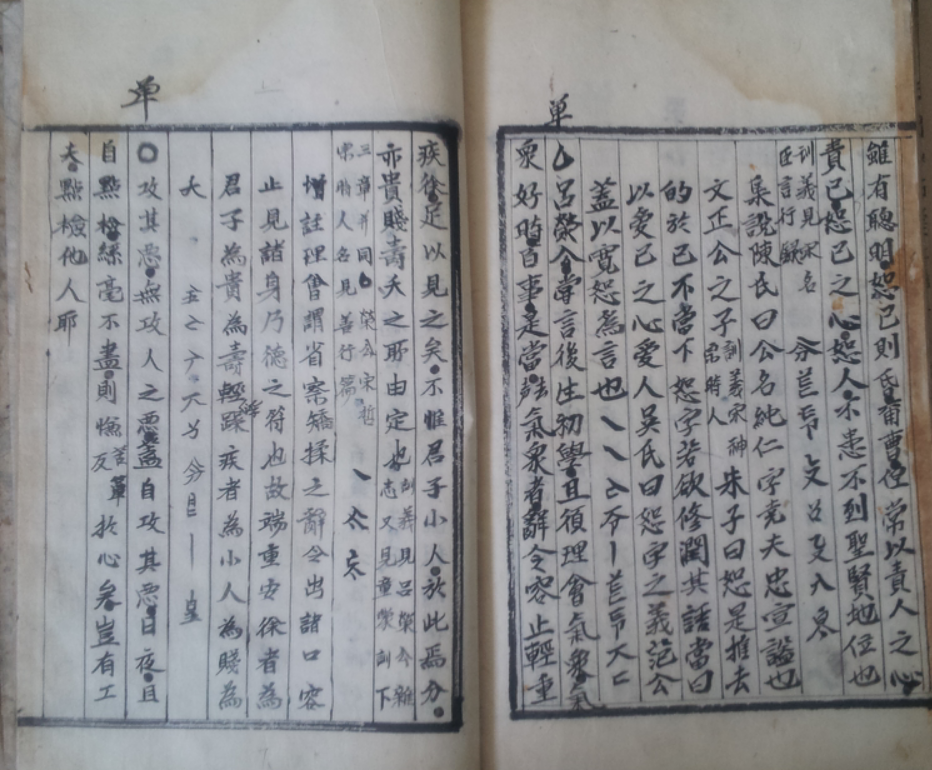 單
雖有聰明恕己則昏爾曹但常以責人之心
責己恕己之心恕人不患不到聖賢地位也
訓義見宋名
臣言行錄
集說陳氏曰公名純仁字堯夫忠宣謚也
文正公之子訓義宋神
宗時人朱子曰恕是推去
的於己不當下恕字若欲修潤其語當曰
以愛己之心愛人吳氏曰恕字之義范公
蓋以寬恕為言也
呂榮公嘗言後生初學且須理會氣象氣
象好時百事是當氣象者辭令容止輕重
單
疾徐足以見之矣不惟君子小人於此焉分
亦貴賤壽夭之所由定也訓義見呂榮公雜
志又見童蒙訓下
三章并同榮公宋哲
宗時人名見善行篇
增註理會謂省察矯揉之辭令出諸口容
止見諸身乃德之符也故端重安徐者為
君子為貴為壽輕躁疾者為小人為賤為
夭
攻其惡無攻人之惡蓋自攻其惡日夜且
自點檢絲毫不盡則慊於心矣豈有工
夫點檢他人耶